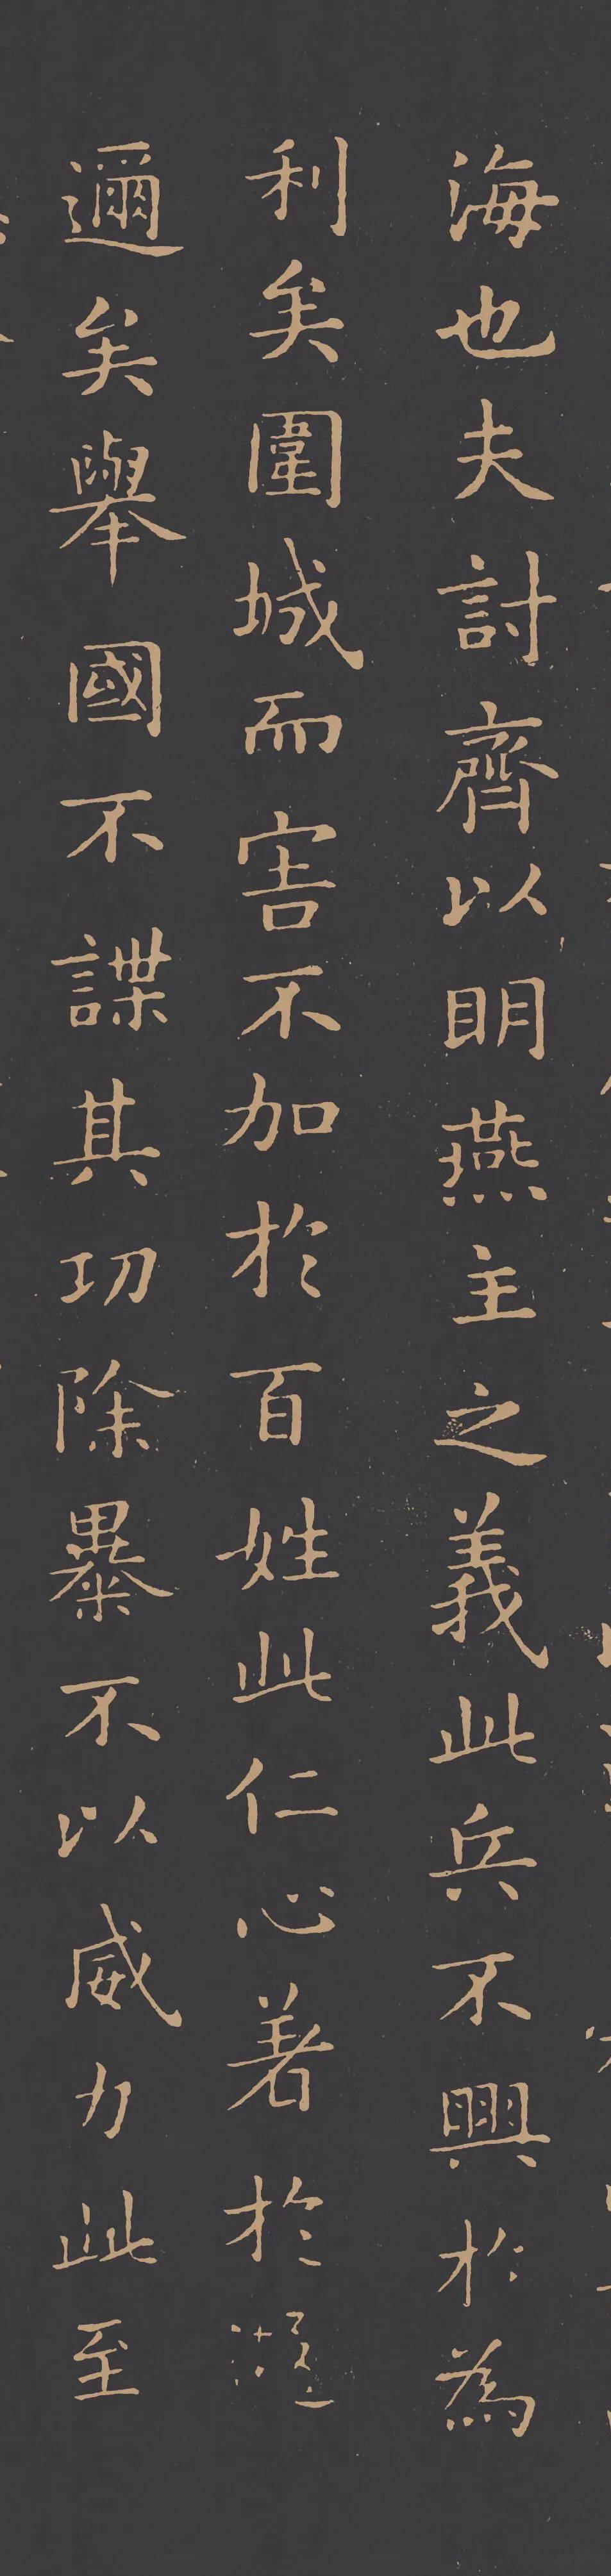 海也夫討齊以明燕主之義此兵不興於為
利矣圍城而害不加於百姓此仁心著於遐
邇矣舉國不謀其功除暴不以威力此至